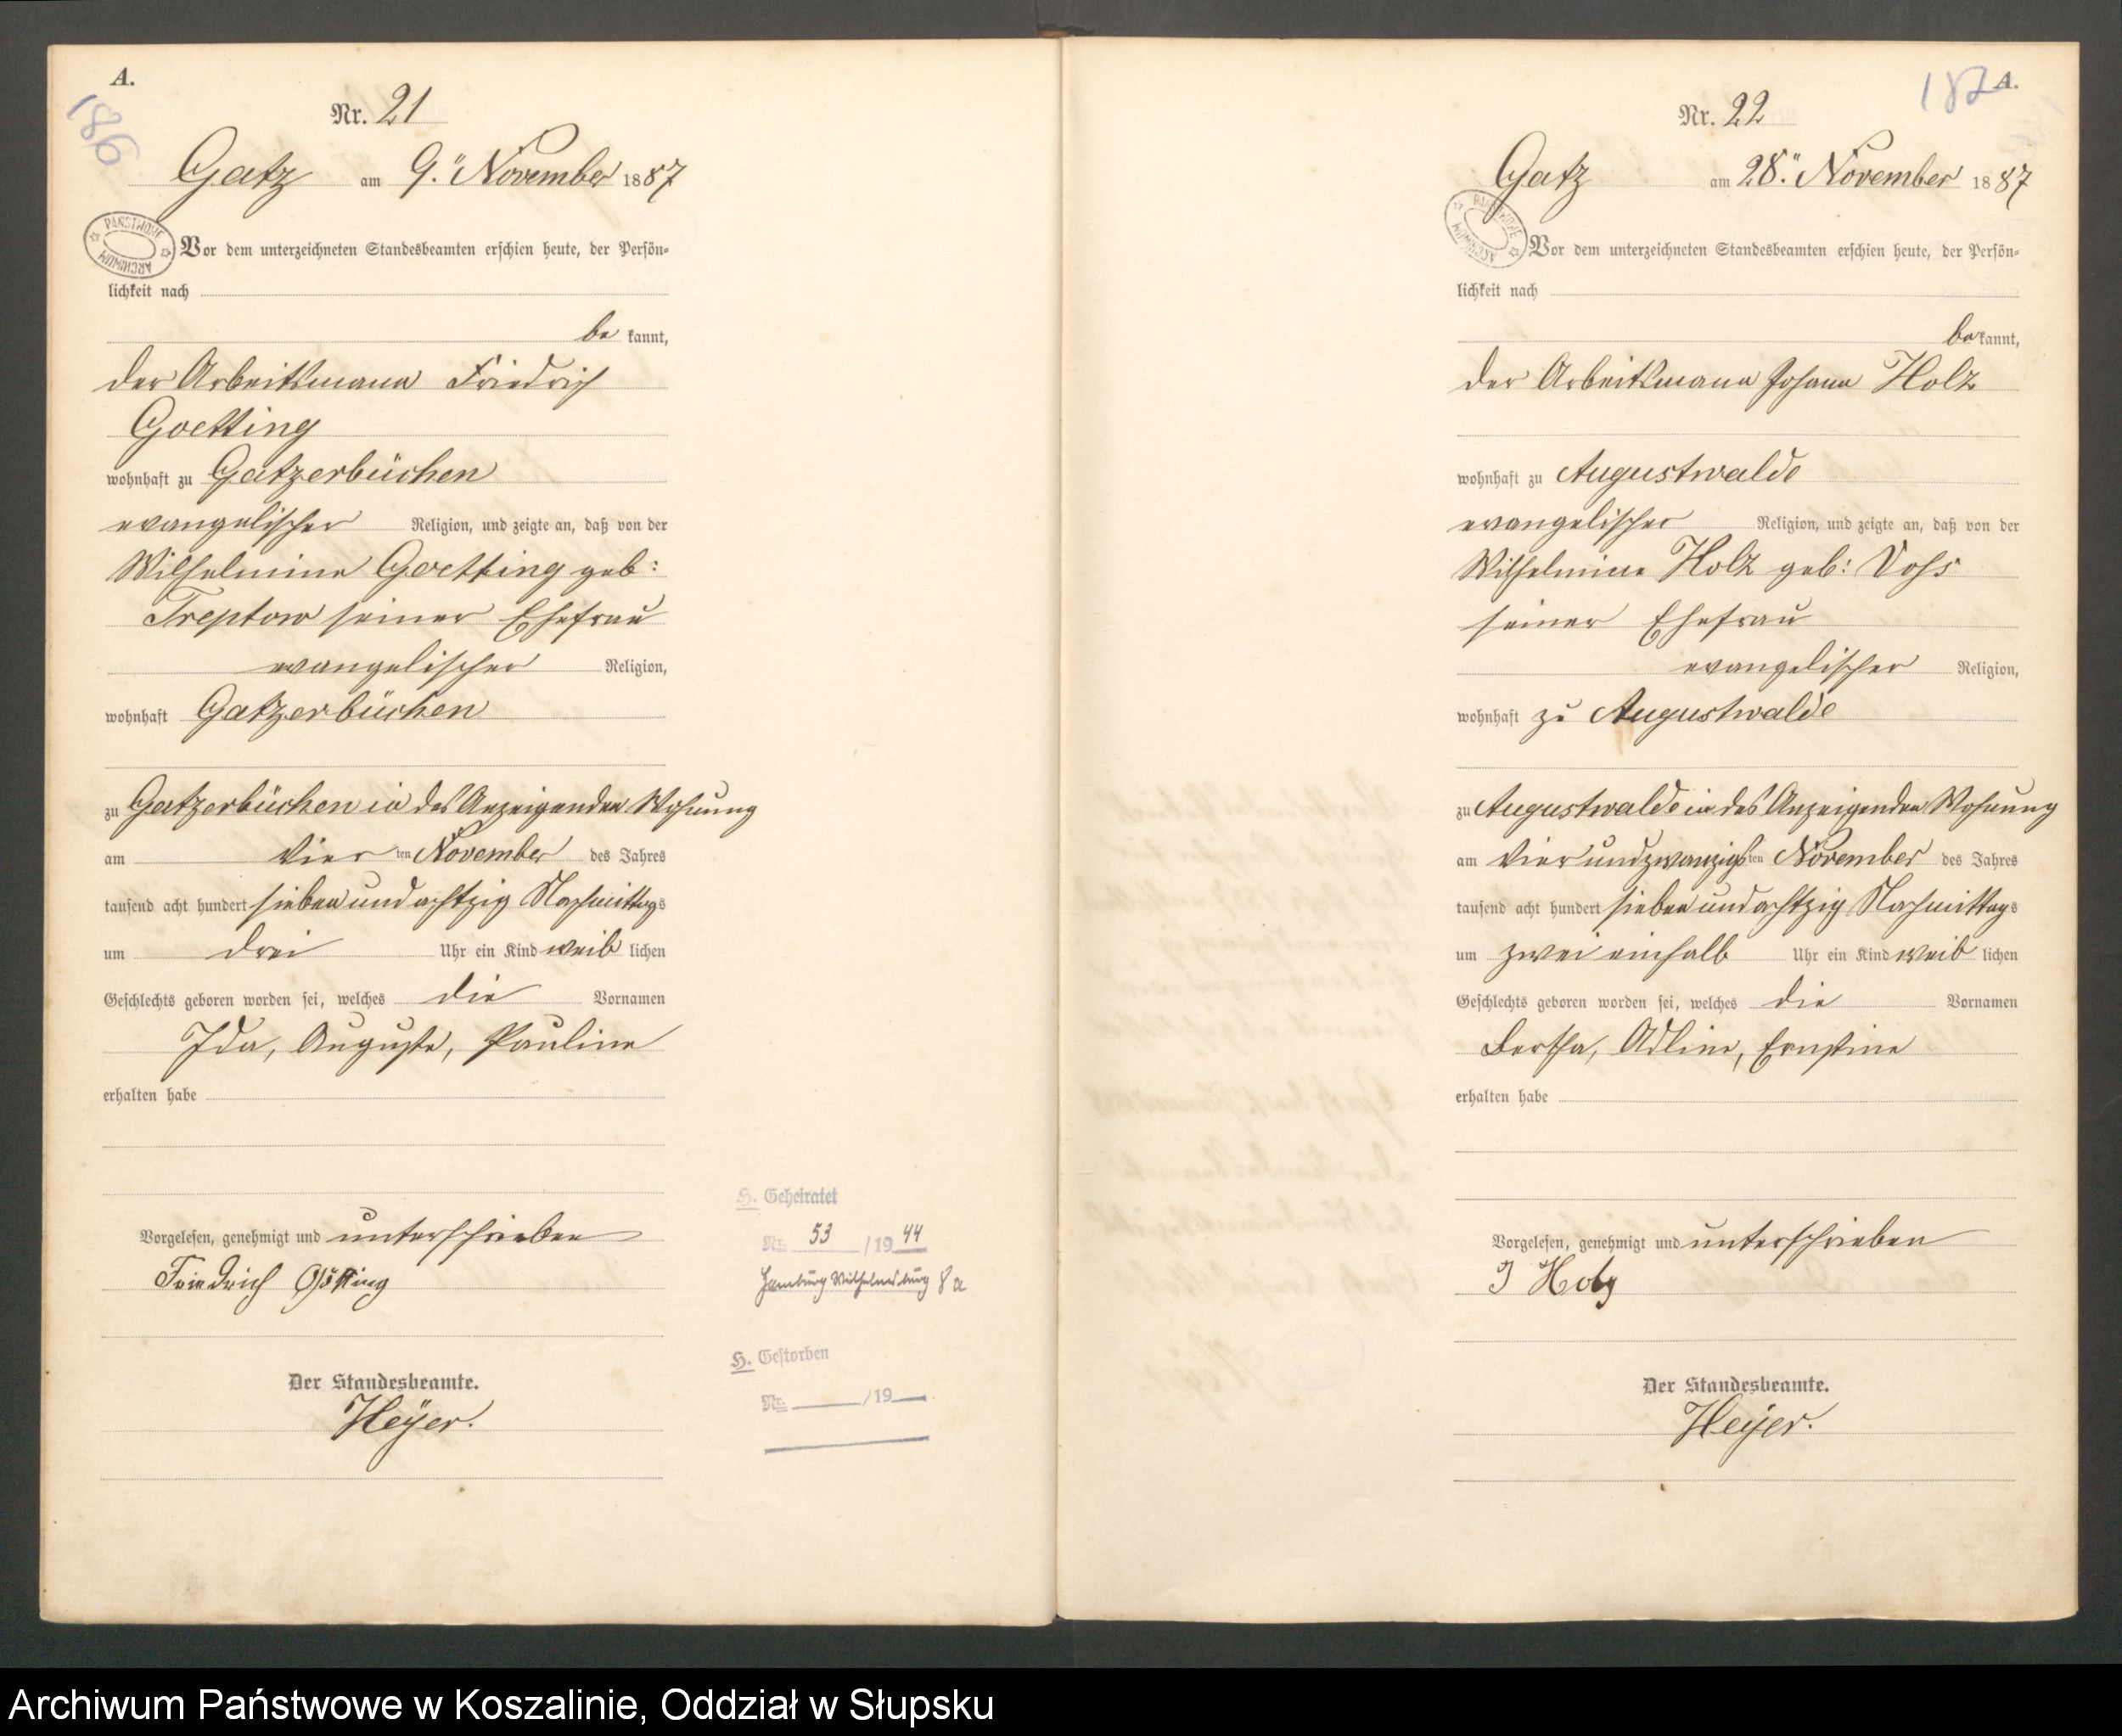 A.
186
Nr. 21
Gatz am 9. November 1887
PAŃSTWOWE ARCHIWUM
Vor dem unterzeichneten Standesbeamten erschien heute, der Persön-
lichkeit nach
be kannt,
der Arbeitsmann Friedrich
Goetting
wohnhaft zu Gatzerbüchen
evangelischer Religion, und zeigte an, daß von der
Wilhelmine Goetting geb:
Treptow seiner Ehefrau
evangelischer Religion,
wohnhaft Gatzerbüchen
zu Gatzerbüchen in des Anzeigenden Wohnung
am vier ten November des Jahres
tausend acht hundert sieben und achtzig Nachmittags
um drei Uhr ein Kind weib lichen
Geschlechts geboren worden sei, welches die Vornamen
Ida, Auguste, Pauline
erhalten habe
Vorgelesen, genehmigt und unterschrieben
Friedrich Götting
Der Standesbeamte.
Heyer.
H. Geheiratet
Nr. 53 /19 44
Hamburg Wilhelmsburg 8a
H. Gestorben
Nr. /19
182 A.
Nr. 22
Gatz am 28. November 1887
PAŃSTWOWE ARCHIWUM
Vor dem unterzeichneten Standesbeamten erschien heute, der Persön-
lichkeit nach
be kannt,
der Arbeitsmann Johann Holz
wohnhaft zu Augustwalde
evangelischer Religion, und zeigte an, daß von der
Wilhelmine Holz geb: Voss
seiner Ehefrau
evangelischer Religion,
wohnhaft zu Augustwalde
zu Augustwalde in des Anzeigenden Wohnung
am vier und zwanzigsten November des Jahres
tausend acht hundert sieben und achtzig Nachmittags
um zwei einhalb Uhr ein Kind weib lichen
Geschlechts geboren worden sei, welches die Vornamen
Bertha, Adline, Ernstine
erhalten habe
Vorgelesen, genehmigt und unterschrieben
J Holz
Der Standesbeamte.
Heyer.
Archiwum Państwowe w Koszalinie, Oddział w Słupsku